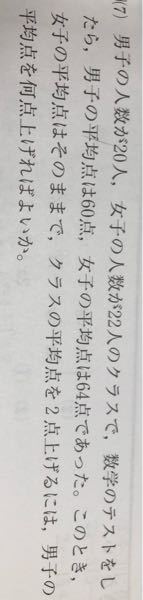 (7) 男子の人数が20人，女子の人数が22人のクラスで，数学のテストをし
たら，男子の平均点は60点，女子の平均点は64点であった。このとき，
女子の平均点はそのままで，クラスの平均点を2点上げるには，男子の
平均点を何点上げればよいか。